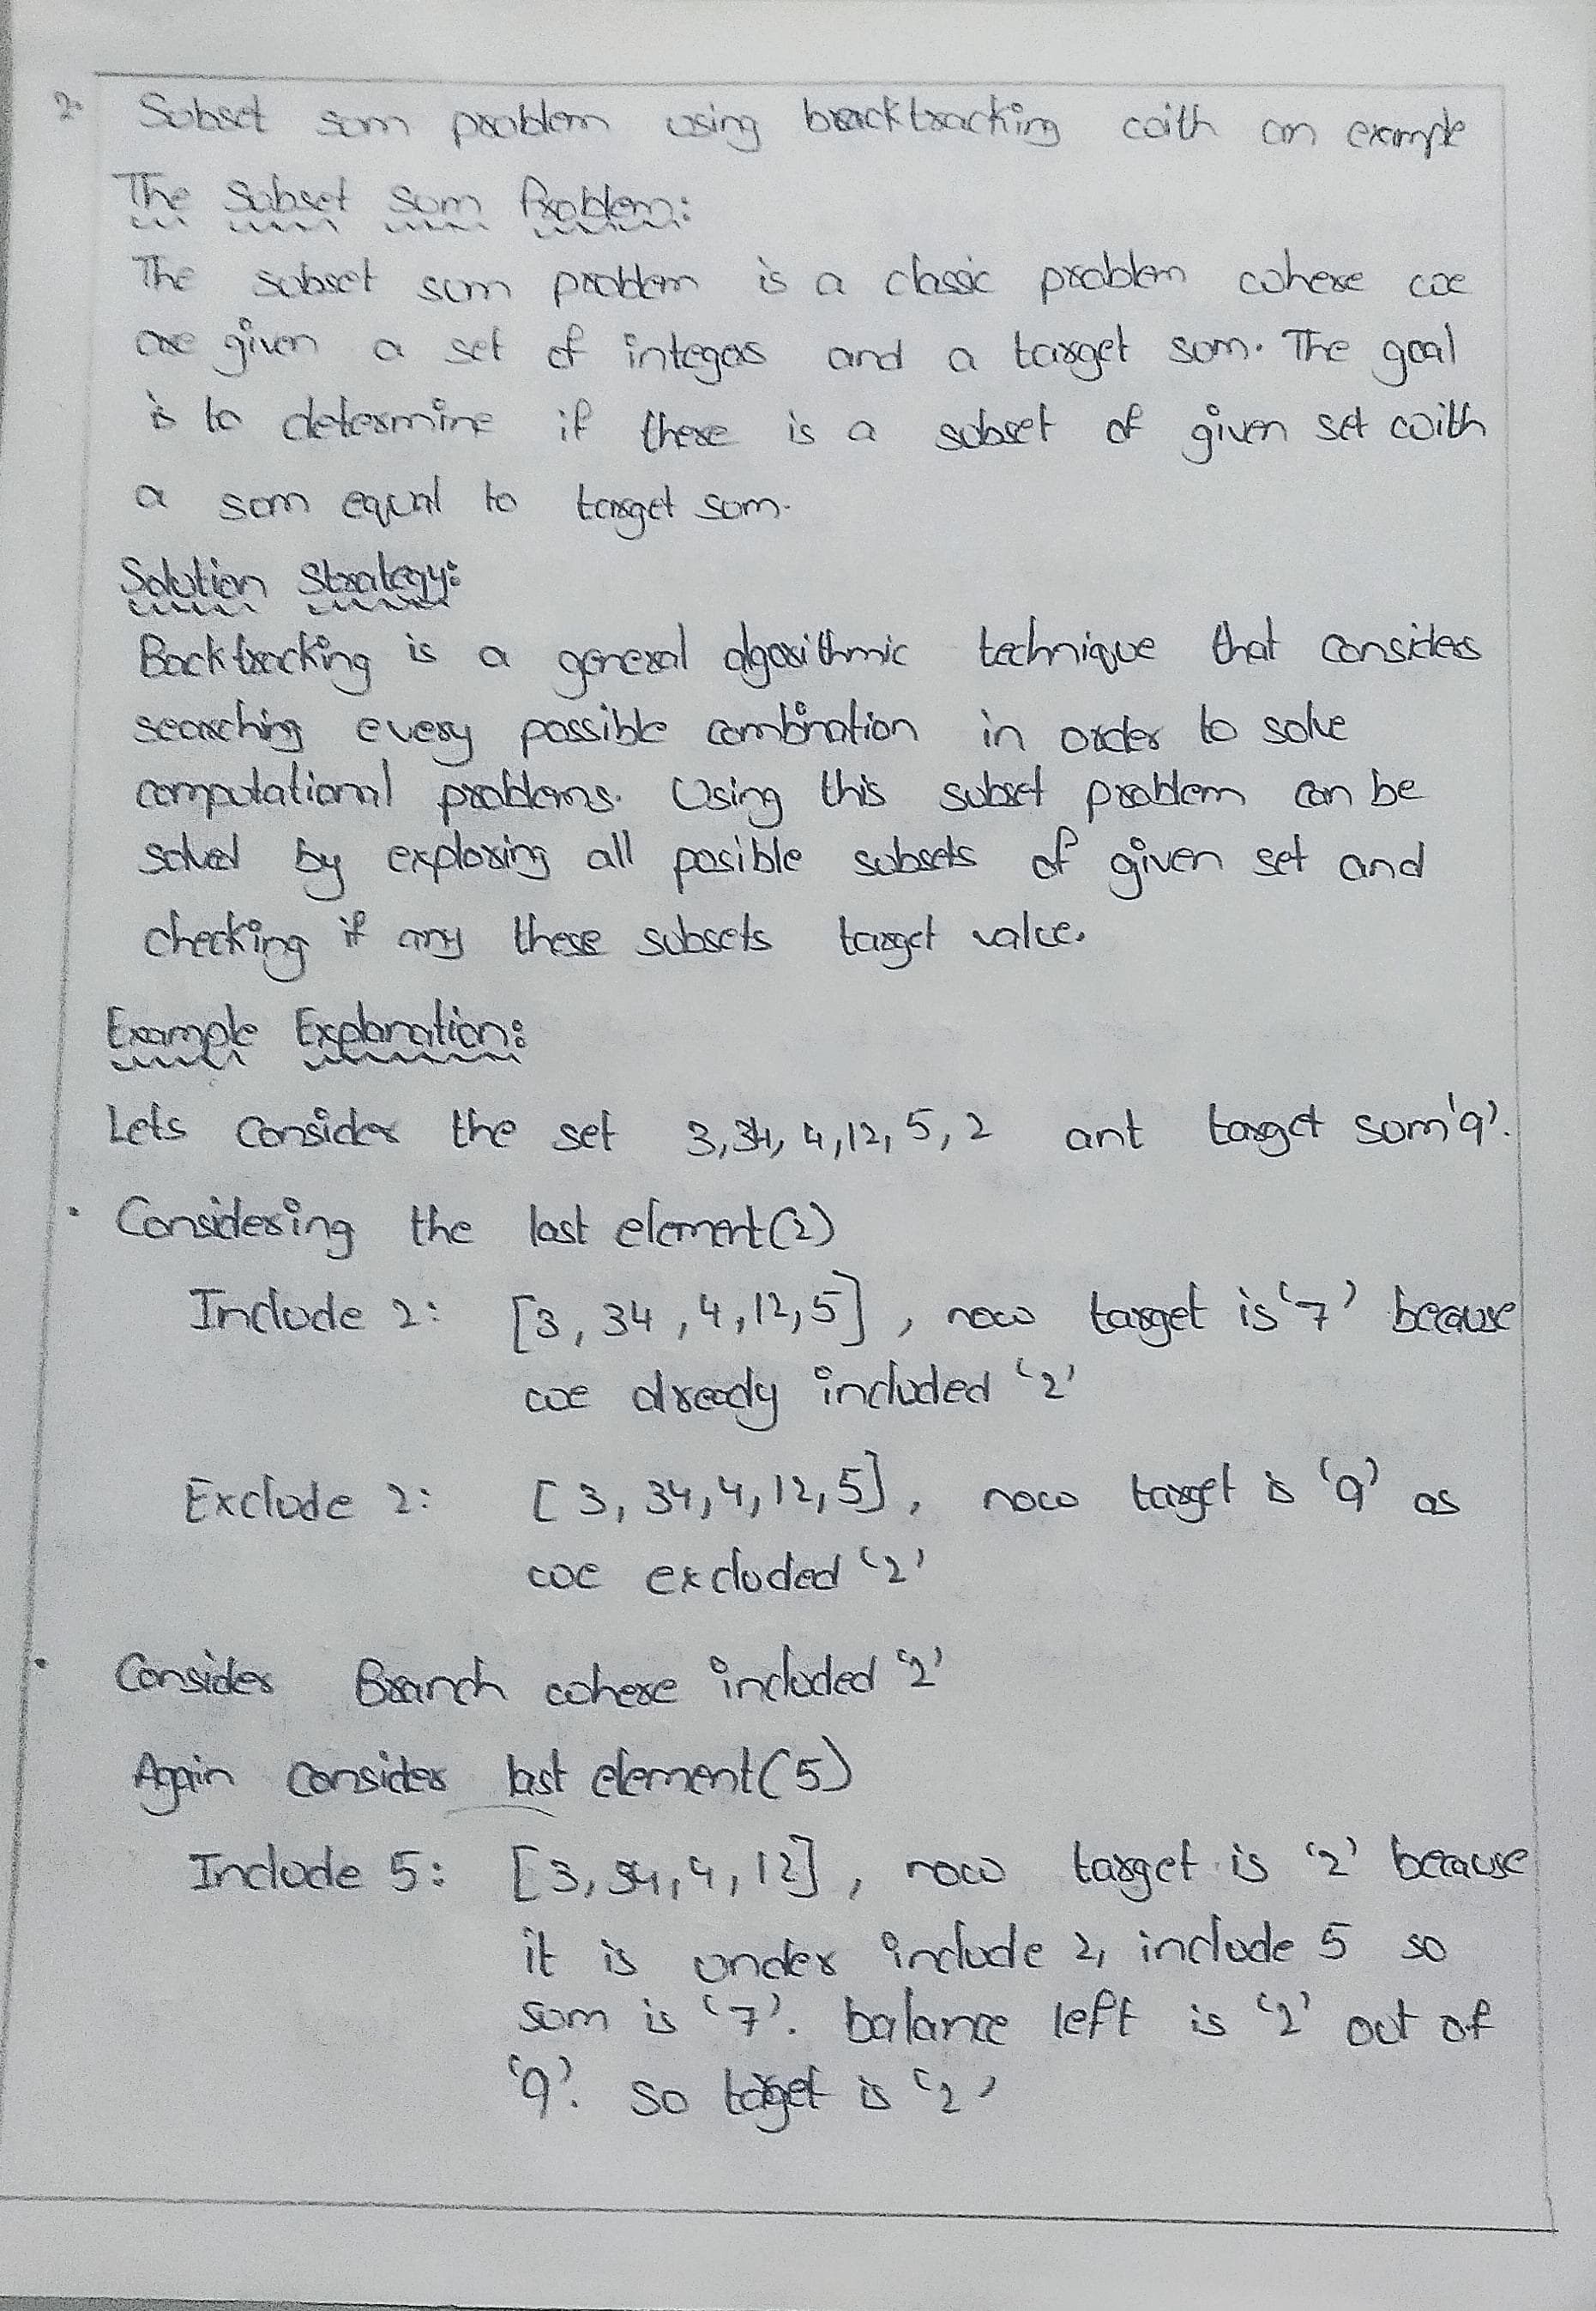 2. Subset sum problem using backtracking with an example
The Subset Sum Problem:
The subset sum problem is a classic problem where we
are given a set of integers and a target sum. The goal
is to determine if there is a subset of given set with
a sum equal to target sum.
Solution Strategy:
Backtracking is a general algorithmic technique that considers
searching every possible combination in order to solve
computational problems. Using this subset problem can be
solved by exploring all posible subsets of given set and
checking if any these subsets target value.
Example Explanation:
Lets consider the set 3,34,4,12,5,2 ant target sum '9'.
• Considering the last element(2)
Include 2: [3,34,4,12,5], now target is '7' because
we already included '2'
Exclude 2: [3,34,4,12,5], now target is '9' as
we excluded '2'
• Consider Branch where included '2'
Again consider last element(5)
Include 5: [3,34,4,12], now target is '2' because
it is under include 2, include 5 so
sum is '7'. balance left is '2' out of
'9'. so target is '2'